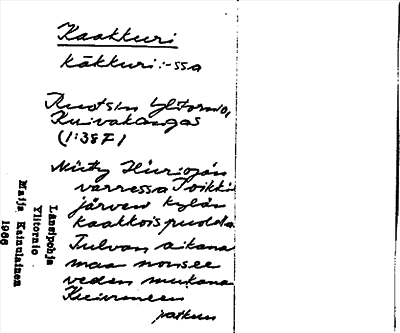 Kaakkuri
käkkuri: -ssa
Ruotsin Ylitornio,
Kuivakangas
(1:38 F)
Niitty Hiriojan
varressa Poikki
järven kylän
kaakkoispuolella
Tulvan aikana
maa nousee
veden mukana
Kuivaneen
jatkuu
Länsipohja
Ylitornio
Maija Kainulainen
1966